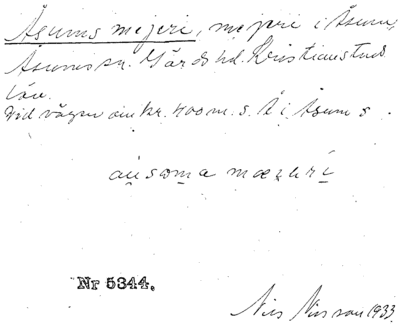 Åsums mejeri, mejeri i Åsum,
Åsums sn. Gärds hd. Kristianstads
län.
Vid vägen omkr. 400 m. s. Å i Åsum s
Nr 5344.
Nils Nilsson 1933.